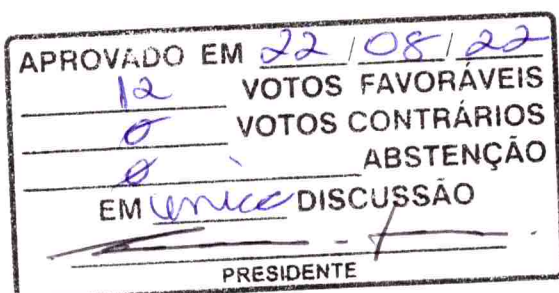 APROVADO EM 22/08/22
12 VOTOS FAVORÁVEIS
0 VOTOS CONTRÁRIOS
0 ABSTENÇÃO
EM única DISCUSSÃO
PRESIDENTE